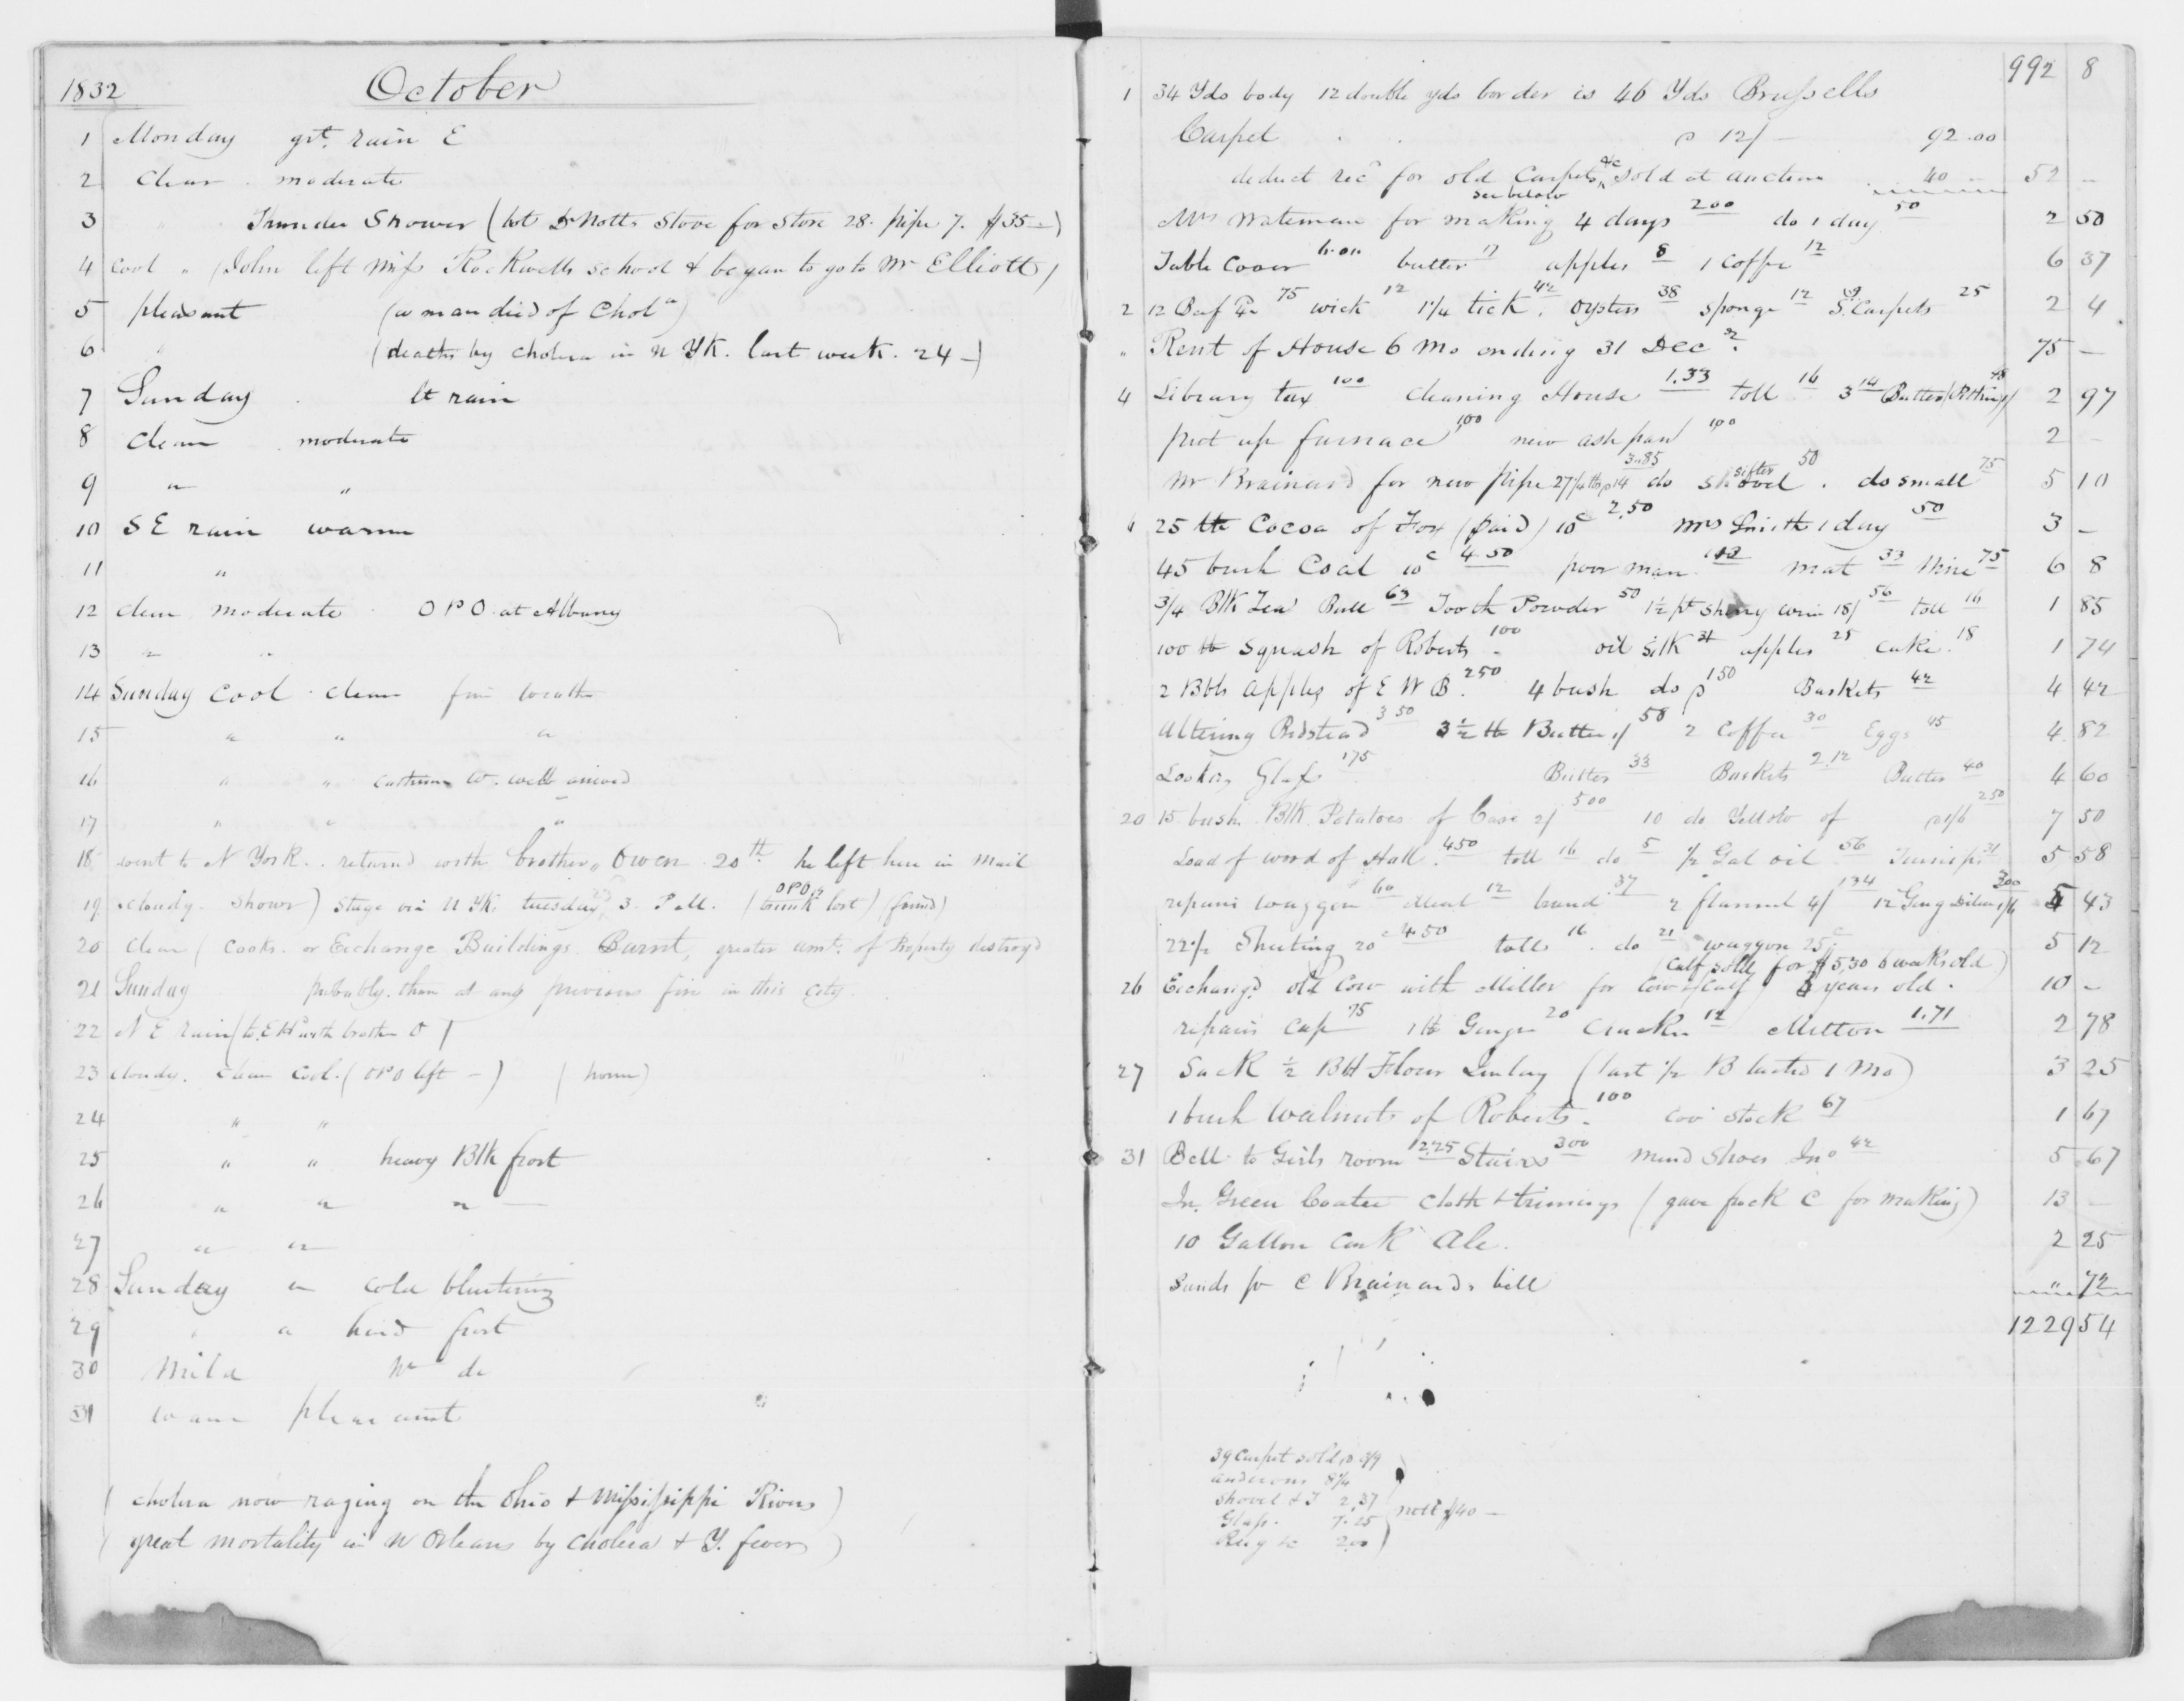 1832 October
1 Monday grt. rain E
2 Clear moderate
3 " Thunder Shower (bot Dr Notts Stove for Store 28. pipe 7. $35 —)
4 Cool " (John left Miss Rockwells school & began to go to Mr Elliott)
5 pleasant (a man died of Chola)
6 " (deaths by cholera in N Yk. last week. 24 —)
7 Sunday lt rain
8 clear moderate
9 " "
10 S E rain warm
11 "
12 clear moderate O P O at Albany
13 " "
14 Sunday Cool clear fine weather
15 " " "
16 " " W. arrived
17 " " "
18 went to N York. returned with brother Owen 20th he left here in mail
19 cloudy. shower) Stage via N Yk, tuesday 23 3. P.M. (OPOs trunk lost) (found)
20 Clear (Cooks. or Exchange Buildings Burnt, greater amt. of Property destroyd
21 Sunday probably than at any previous fire in this city
22 N E rain (to E H with brother O)
23 cloudy. clear Cool. (O P O left —) (home)
24 " "
25 " " heavy Blk frost
26 " " " —
27 " "
28 Sunday " cold blustering
29 " " hard frost
30 Mild " do
31 warm pleasant
(cholera now raging on the Ohio & Mississippi Rivers)
(great mortality in N Orleans by cholera & Y. fever)
992 8
1 34 Yds body 12 double yds border is 46 Yds Brussells
Carpet p 12/— 92.00
deduct recd for old Carpets &c sold at auction 40 — 52 —
see below
Mrs Wateman for making 4 days 200 do 1 day 50 2 50
Table Cover 6.00 butter 17 apples 8 1 Coffee 12 6 37
2 12 Beef 75 wick 12 1 1/4 tick 42 Oysters 38 sponge 12 S. Carpets 25 2 4
" Rent of House 6 Mo ending 31 Decr. 75 —
4 Library tax 100 Cleaning House 1.33 toll 16 3 14 Butter 48 2 97
put up furnace 100 new ash pan 100 2 —
Mr Brainard for new pipe 27 1/4 lb p 14 3.85 do sifter shovel 50 do small 75 5 10
6 25 lb Cocoa of Fox (paid) 10c 2.50 Mrs Smith 1 day 50 3 —
45 bush Coal 10c 4.50 poor man mat 33 Wine 75 6 8
3/4 Blk Tea Bull 63 Tooth Powder 50 1 1/2 pt Sherry wine 18/ 56 toll 16 1 85
100 lb Squash of Roberts 100 oil silk 31 apples 25 cake 18 1 74
2 Bbls apples of E W B. 250 4 bush do p 150 Baskets 42 4 42
Altering Bedstead 3 50 3 1/2 lb Butter 1/ 58 2 Coffee 30 Eggs 45 4 82
Looking Glass 175 Butter 33 Baskets 2.12 Butter 40 4 60
20 15 bush. Blk Potatoes of Case 2/ 500 10 do Yellow of p 1/6 250 7 50
Load of wood of Hall 450 toll 16 do 5 1/2 Gal oil 56 Turnips 31 5 58
repairs waggon 60 Meal 12 braid 37 2 flannel 4/ 134 12 Ging 1/6 300 5 43
22 1/2 Sheeting 20c 4.50 toll 16 do 21 waggon 25c 5 12
(Calf sold for $5,30 6 weeks old)
26 Exchangd. old Cow with Miller for Cow & Calf years old. 10 —
repairs Cap 75 1 lb Ginger 20 Cracker 12 Mutton 1.71 2 78
27 Sack 1/2 Bbl Flour (last 1/2 B lasted 1 Mo) 3 25
1 bush Walnuts of Roberts 100 cov stock 67 1 67
31 Bell to Girls room 2.25 Stairs 300 mend Shoes Jno 42 5 67
Jn. Green Coatee Cloth & trimings (gave frock C for making) 13 —
10 Gallon Cask Ale. 2 25
Sunds pr C Brainards bill " 72
1229 54
39 Carpet sold p 3/9
andirons 8 1/4
Shovel & T 2,37
Glass. 7.25 nett $40 —
Rug &c 2.00